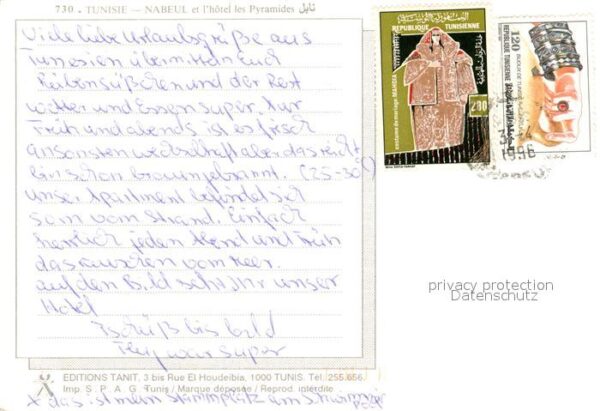 730 - TUNISIE — NABEUL et l'hôtel les Pyramides نابل
Viele liebe Urlaubsgrüße aus
Tunesien übermitteln Euch
und der Rest
Wetter und Essen super. Nur
Früh und abends ist es frisch
ansonsten aber das reicht
bin schon braungebrannt. (25-30°)
Unser Apartment befindet sich
50m vom Strand. Einfach
herrlich jeden Abend und Früh
das Rauschen vom Meer.
auf den Bild seht Ihr unser
Hotel
Tschüß bis bald
Flug war super
EDITIONS TANIT, 3 bis Rue El Houdeibia, 1000 TUNIS. Tel. 255.656.
Imp. S. P. A. G. Tunis / Marque déposée / Reprod. interdite
x das ist mein Stammplatz am Schwimmer
pool
REPUBLIQUE TUNISIENNE
costume de mariage MAHDIA
200
120
REPUBLIQUE TUNISIENNE
1996
privacy protection
Datenschutz